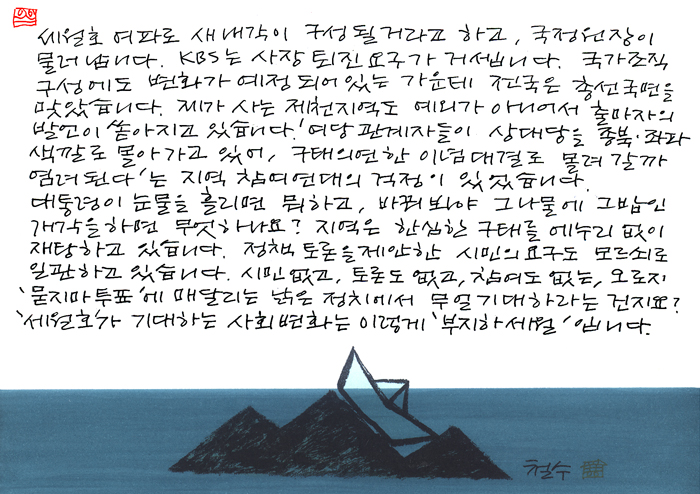 세월호 여파로 새내각이 구성될거라고 하고, 국정원장이
물러납니다. KBS는 사장 퇴진요구가 거셉니다. 국가조직
구성에도 변화가 예정되어있는 가운데 전국은 총선국면을
맞았습니다. 제가 사는 제천지역도 예외가 아니어서 출마자의
발언이 쏟아지고 있습니다. '여당관계자들이 상대당을 종북·좌파
색깔로 몰아가고 있어, 구태의연한 이념대결로 몰려갈까
염려된다'는 지역 참여연대의 걱정이 있었습니다.
대통령이 눈물을 흘리면 뭐하고, 바꿔봐야 그나물에 그밥인
개각을하면 무엇하나요? 지역은 한심한 구태를 에누리 없이
재탕하고 있습니다. 정책토론을제안한 시민의요구도 모르쇠로
일관하고 있습니다. 시민없고, 토론도 없고, 참여도 없는, 오로지
'묻지마투표'에 매달리는 낡은 정치에서 무얼기대하라는 건지요?
'세월호'가 기대하는 사회변화는 이렇게 '부지하세월'입니다.
철수